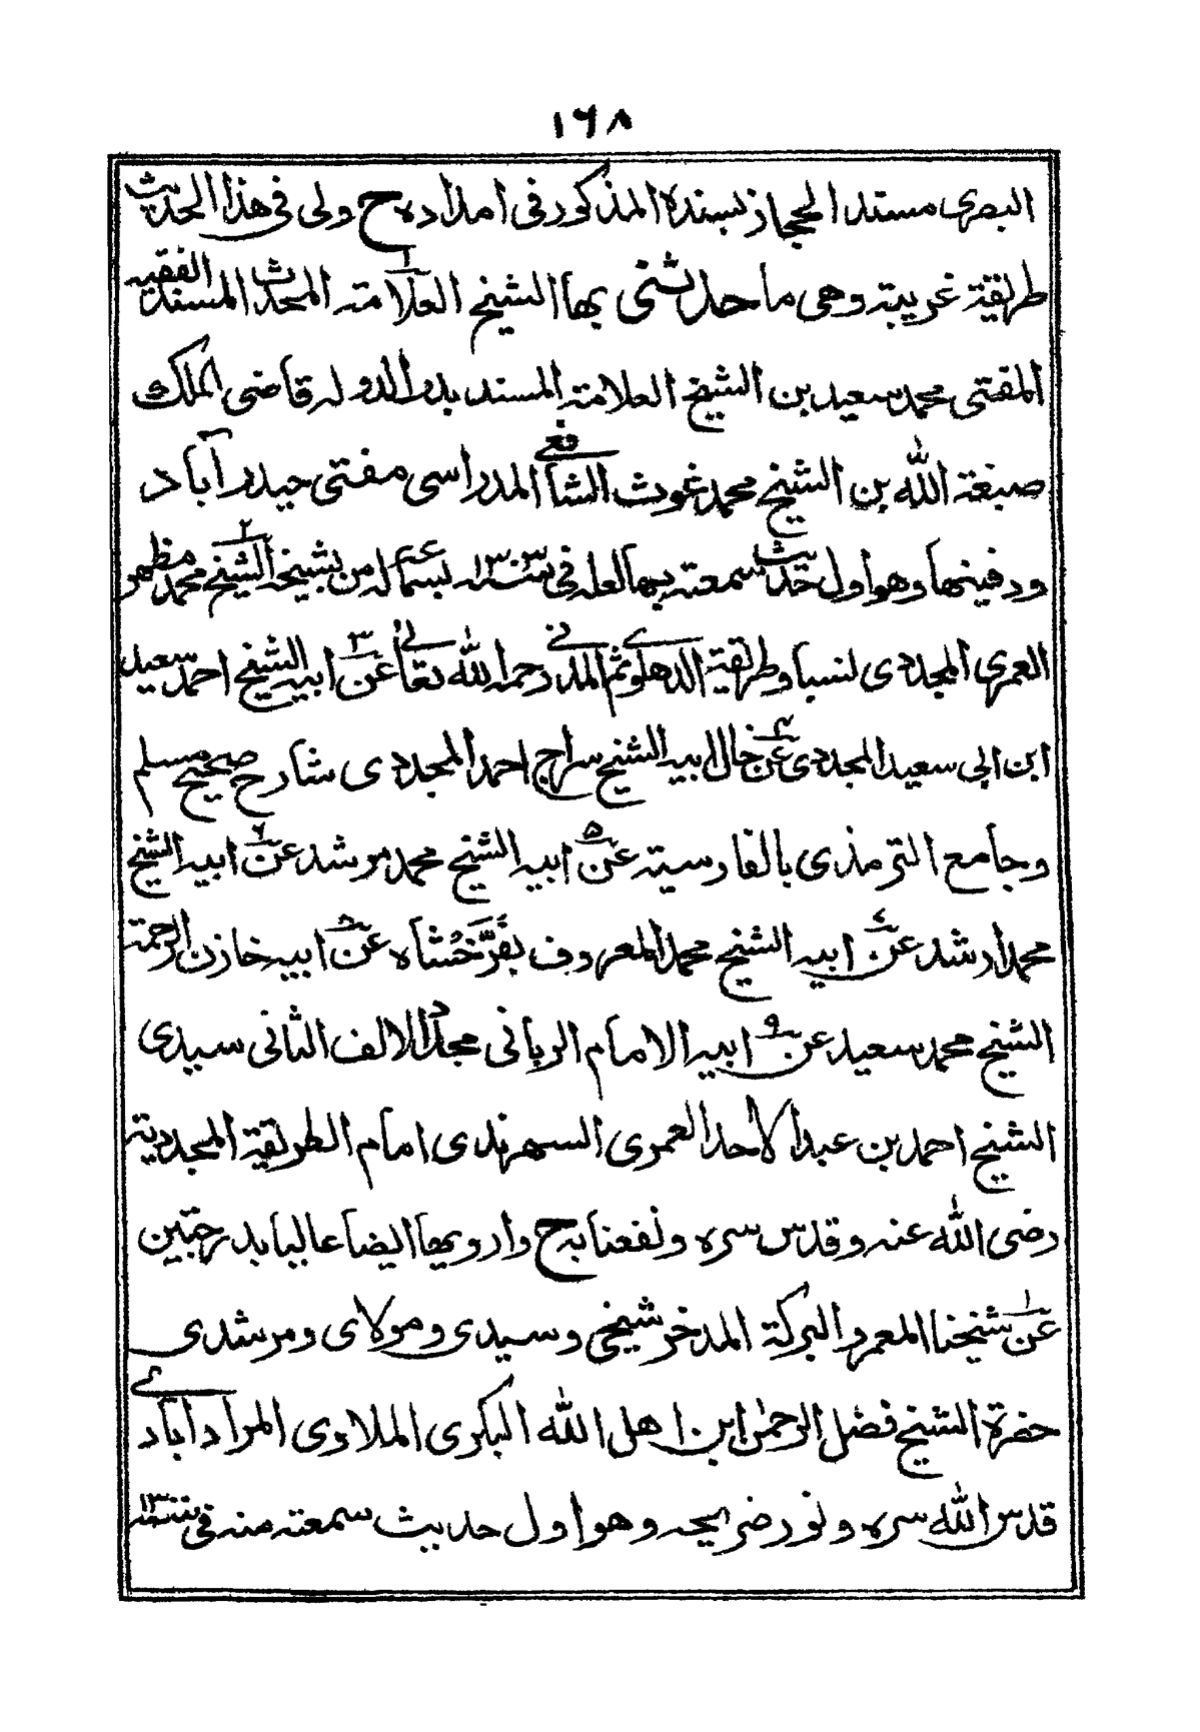 ١٦٨
البصری مسند الحجاز بسنده المذکور فی امداده ح ولی فی هذا الحدیث
طریقة غریبة وهی ما حدثنی بها الشیخ العلامة المحدث المسند الفقیه
المفتی محمد سعید بن الشیخ العلامة المسند بدر الدولہ قاضی الملک
صبغة الله بن الشیخ محمد غوث الشافعی المدراسی مفتی حیدرآباد
ودفینها وهو اول حدیث سمعته بها لعله فی سنہ ١٣٠٣ بسماعہ من شیخه الشیخ محمد مظهر
العمری المجددی نسبا وطریقة الدهلوی ثم المدنی رحمه الله تعالی عن ابیه الشیخ احمد سعید
ابن ابی سعید المجددی عن خال ابیه الشیخ سراج احمد المجددی شارح صحیح مسلم
وجامع الترمذی بالفارسیة عن ابیه الشیخ محمد مرشد عن ابیه الشیخ
محمد ارشد عن ابیه الشیخ محمد المعروف بفرخشاه عن ابیه خازن الرحمة
الشیخ محمد سعید عن ابیه الامام الربانی مجدد الالف الثانی سیدی
الشیخ احمد بن عبد الاحد العمری السهرندی امام الطریقة المجددیة
رضی الله عنه وقدس سره ونفعنا به ح وارویها ایضا عالیا بدرجتین
عن شیخنا المعمر والبرکة المدخر شیخی وسیدی ومولای ومرشدی
حضرة الشیخ فضل الرحمٰن ابن اهل الله البکری الملاوی المرادآبادی
قدس الله سره ونور ضریحه وهو اول حدیث سمعته منه فی